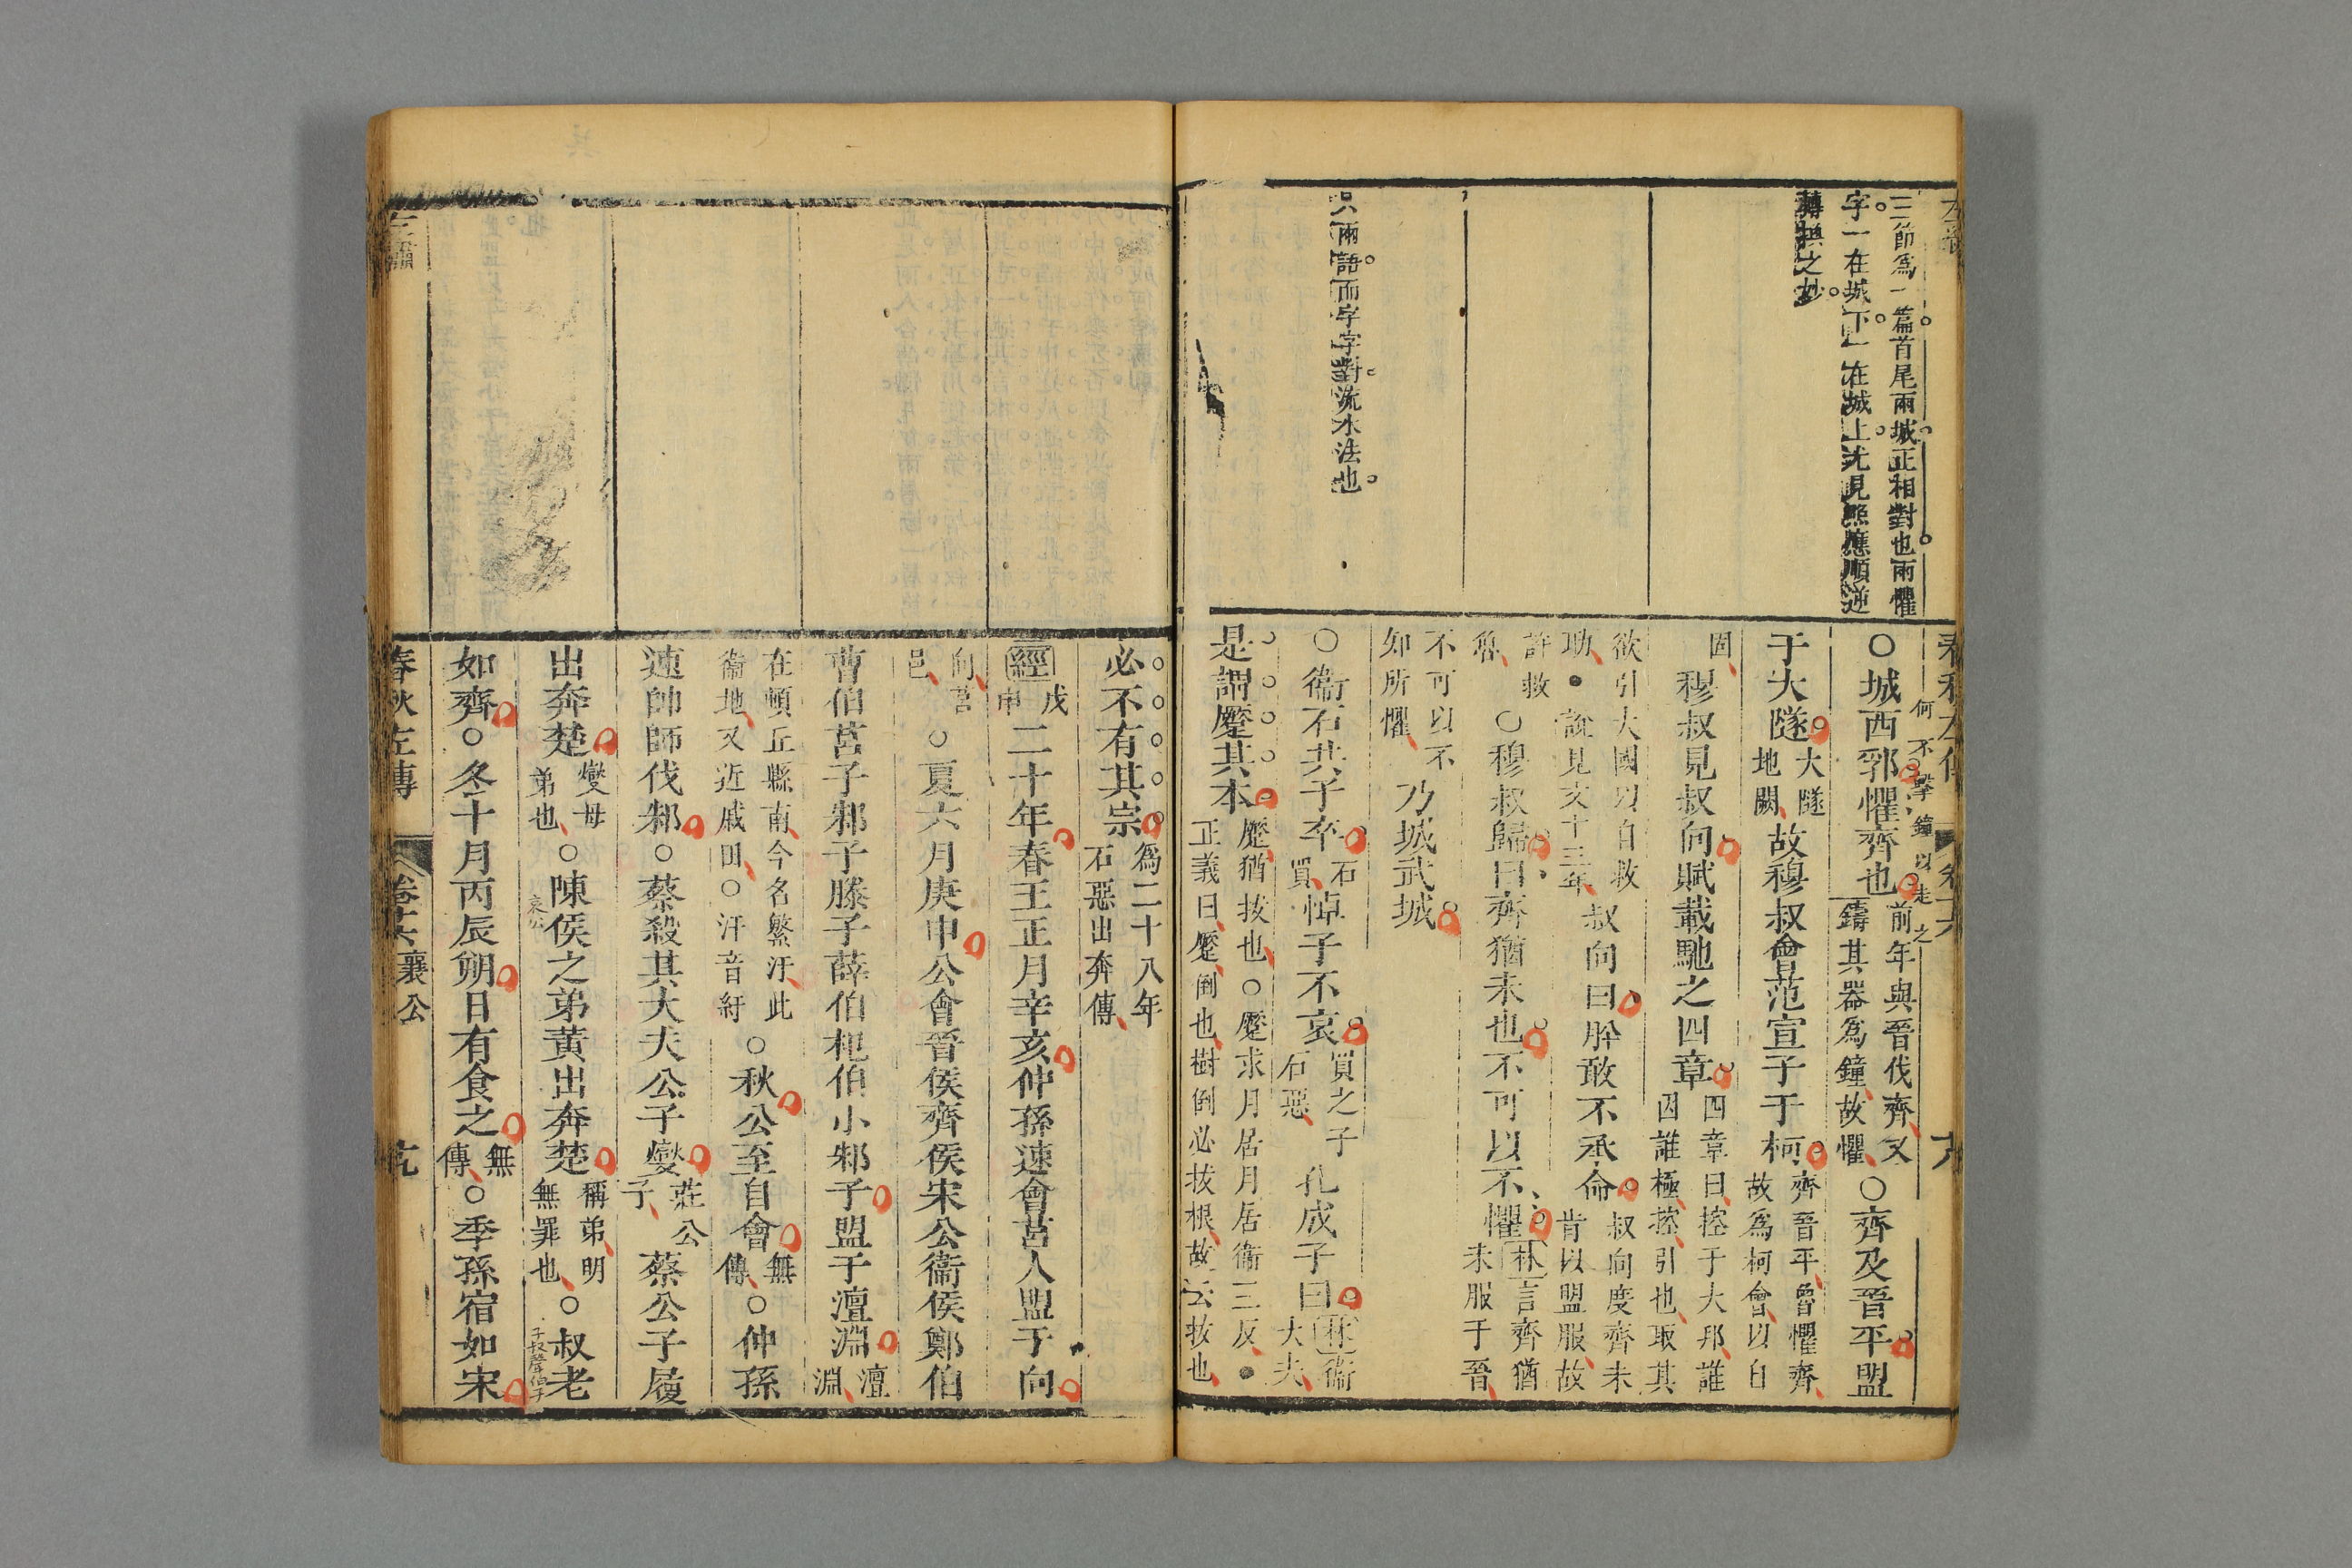 三節爲一篇首尾兩城正相對也兩懼
字一在城下一在城上尤見照應順逆
轉換之妙
只兩語而字字對流水法也
何不擊鐘以走之
○城西郛懼齊也前年與晉伐齊又鑄其器爲鐘故懼○齊及晉平盟
于大隧大隧地闕故穆叔會范宣子于柯齊晉平魯懼齊故爲柯會以自
固穆叔見叔向賦載馳之四章四章曰控于大邦誰因誰極控引也取其
欲引大國以自救助●說見文十三年叔向曰肸敢不承命叔向度齊未肯以盟服故
許救魯○穆叔歸曰齊猶未也不可以不懼林言齊猶未服于晉
不可以不如所懼乃城武城
○衞石共子卒石買悼子不哀買之子石惡孔成子曰林衞大夫
是謂蹷其本蹷猶拔也○蹷求月居月居衞三反●正義曰蹷倒也樹倒必拔根故云拔也
必不有其宗爲二十八年石惡出奔傳
經戊申二十年春王正月辛亥仲孫速會莒人盟于向
向莒邑○夏六月庚申公會晉侯齊侯宋公衞侯鄭伯
曹伯莒子邾子滕子薛伯杞伯小邾子盟于澶淵澶淵
在頓丘縣南今名繁汙此衞地又近戚田○汙音紆○秋公至自會無傳○仲孫
速帥師伐邾○蔡殺其大夫公子燮莊公子蔡公子履
出奔楚燮母弟也○陳侯之弟黃出奔楚稱弟明無罪也○叔老
哀公
子叔聲伯子
如齊○冬十月丙辰朔日有食之無傳○季孫宿如宋
春秋左傳 卷十六 襄公